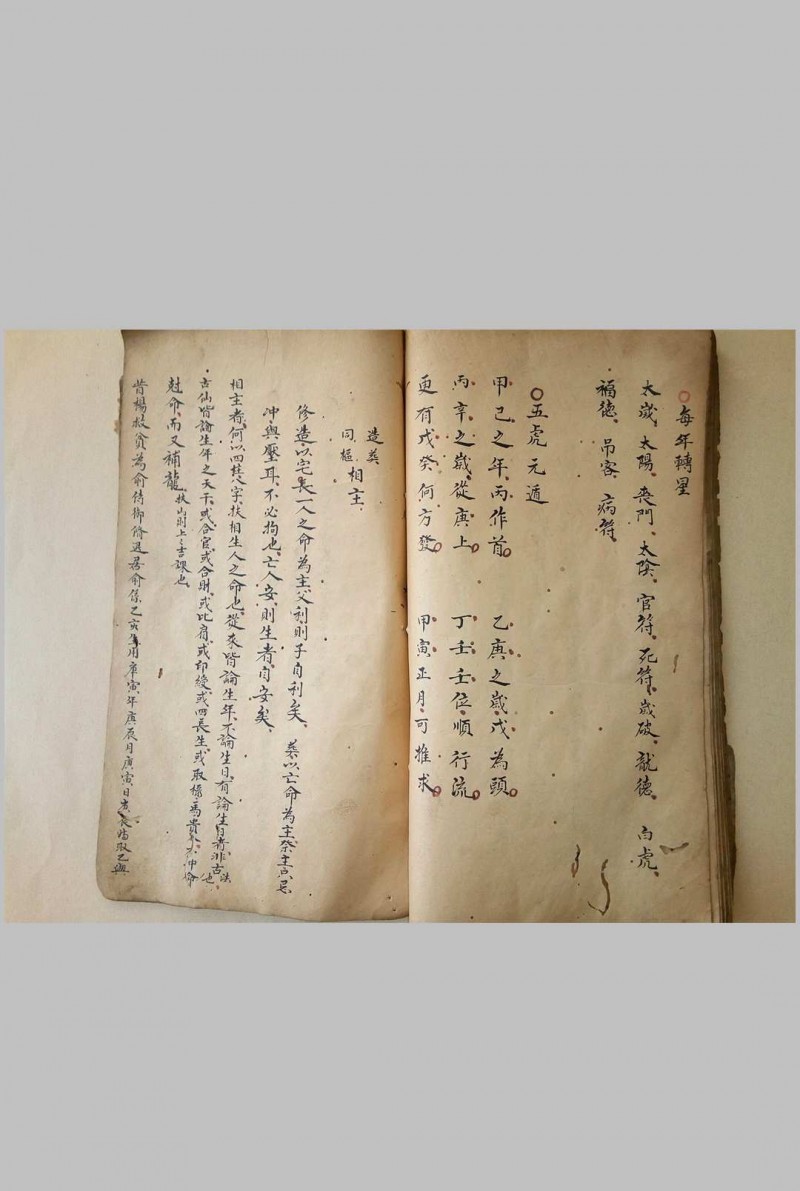 每年轉星
太歲、太陽、喪門、太陰、官符、死符、歲破、龍德、白虎、
福德、吊客、病符、
五虎元遁
甲己之年丙作首 乙庚之歲戊為頭
丙辛之歲從庚上 丁壬壬位順行流
更有戊癸何方發 甲寅正月可推求
造葬
同樞 相主、
修造以宅長一人之命為主父利則子自利矣、葬以亡命為主祭主只忌
冲與壓耳、不必拘也、亡人安則生者自安矣、
相主者何以四柱八字扶相生人之命也、從來皆論生年、不論生日、有論生日者非古法也、
古仙皆論生年之天干、或合官、或合財、或比肩、或印綬、或四長生、或取祿馬貴人、不冲命
尅命、而又補龍、扶山則上上吉課也、
昔楊救貧為俞侍御修退居俞係乙亥生用庚寅年庚辰月庚寅日庚辰時取乙與